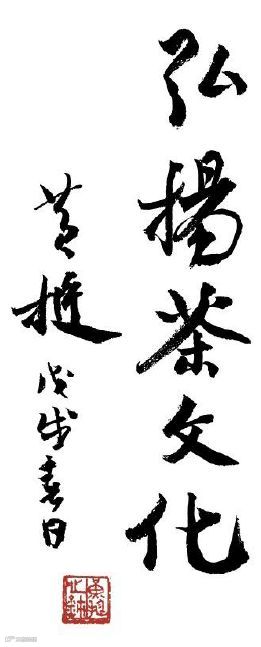 弘揚茶文化
黄
戊戌春日